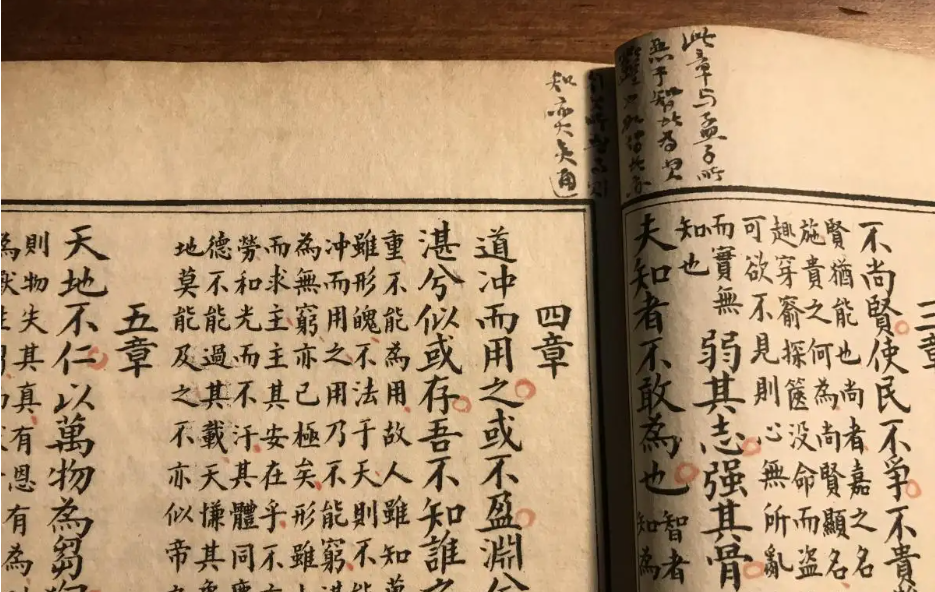 此章与孟子所
不尚賢使民不爭不貴
賢猶能也尚者嘉之名
施貴之何為尚賢顯名
趣穿窬探篋没命而盜
可欲不見則心無所亂
而實無
知也
弱其志强其骨
夫知者不敢為也
智者
知為
四章
道冲而用之或不盈淵兮
湛兮似或存吾不知誰
重不能為用故人雖知萬
雖形魄不法于天則不能
冲而用之用乃不能窮
為無窮亦已極矣形雖
而求主主其安在乎不亦
勞和光而不汙其體同塵
德不能過其載天慊其
地莫能及之不亦似帝
五章
天地不仁以萬物為芻狗
則物失其真有恩有為